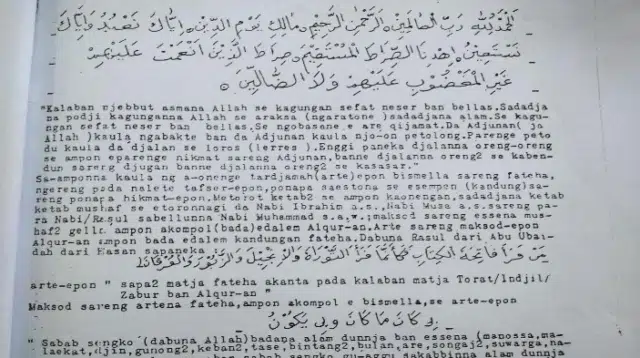 الحمد لله رب العالمين الرحمن الرحيم مالك يوم الدين اياك نعبد واياك
نستعين اهدنا الصراط المستقيم صراط الذين انعمت عليهم
غير المغضوب عليهم ولا الضالين
"Kalaban njebbut asmana Allah se kagungan sefat neser ban bellas.Sadadja
na podji kagunganna Allah se araksa (ngaratone )sadadjana alam.Se kagu-
ngan sefat neser ban bellas.Se ngobasane,e are qijamat.Da Adjunan( ja
Allah )kaula ngabakte ban da Adjunan kaula njo-on petolong.Parenge peto
du kaula da djalan se loros (lerres ).Enggi paneka djalanna oreng-oreng
se ampon eparenge nikmat sareng Adjunan,banne djalanna oreng2 se kaben-
dun sareng djugan banne djalanna oreng2 se kasasar."
Sa-amponna kaula ng a-onenge tardjamah(arte)epon bismella sareng fateha,
ngereng pada nalete tafser-epon,ponapa saestona se esempen (kandung)sa-
reng ponapa hikmat-epon.Metorot ketab2 se ampon kaonengan,sadadjana ketab
ketab mushaf se e toronnagi da Nabi Ibrahim a.s.,Nabi Musa a.s.sareng pa-
ra Nabi/Rasul sabellunna Nabi Muhammad s.a.w.;maksod sareng essena mus-
haf2 gellr ampon akompol(bada)edalem Alqur-an.Arte sareng maksod-epon
Alqur-an ampon bada edalem kandungan fateha.Dabuna Rasul dari Abu Ubai-
dah dari Hasan sapaneka :
من قرأ فاتحة الكتاب فكأنما قرأ التوراة والإنجيل والزبور والفرقان
arte-epon " sapa2 matja fateha akanta pada kalaban matja Torat/Indjil/
Zabur ban Alqur-an "
Maksod sareng artena fateha,ampon akompol e bismella,se arte-epon
بي كان ما كان وبي يكون
" Sabab sengko (dabuna Allah)badana alam dunnja ban essena (manossa,ma-
laekat,djin,gunong2,keban2,tase,bintang2,bulan,are,songaj2,suwarga,na-